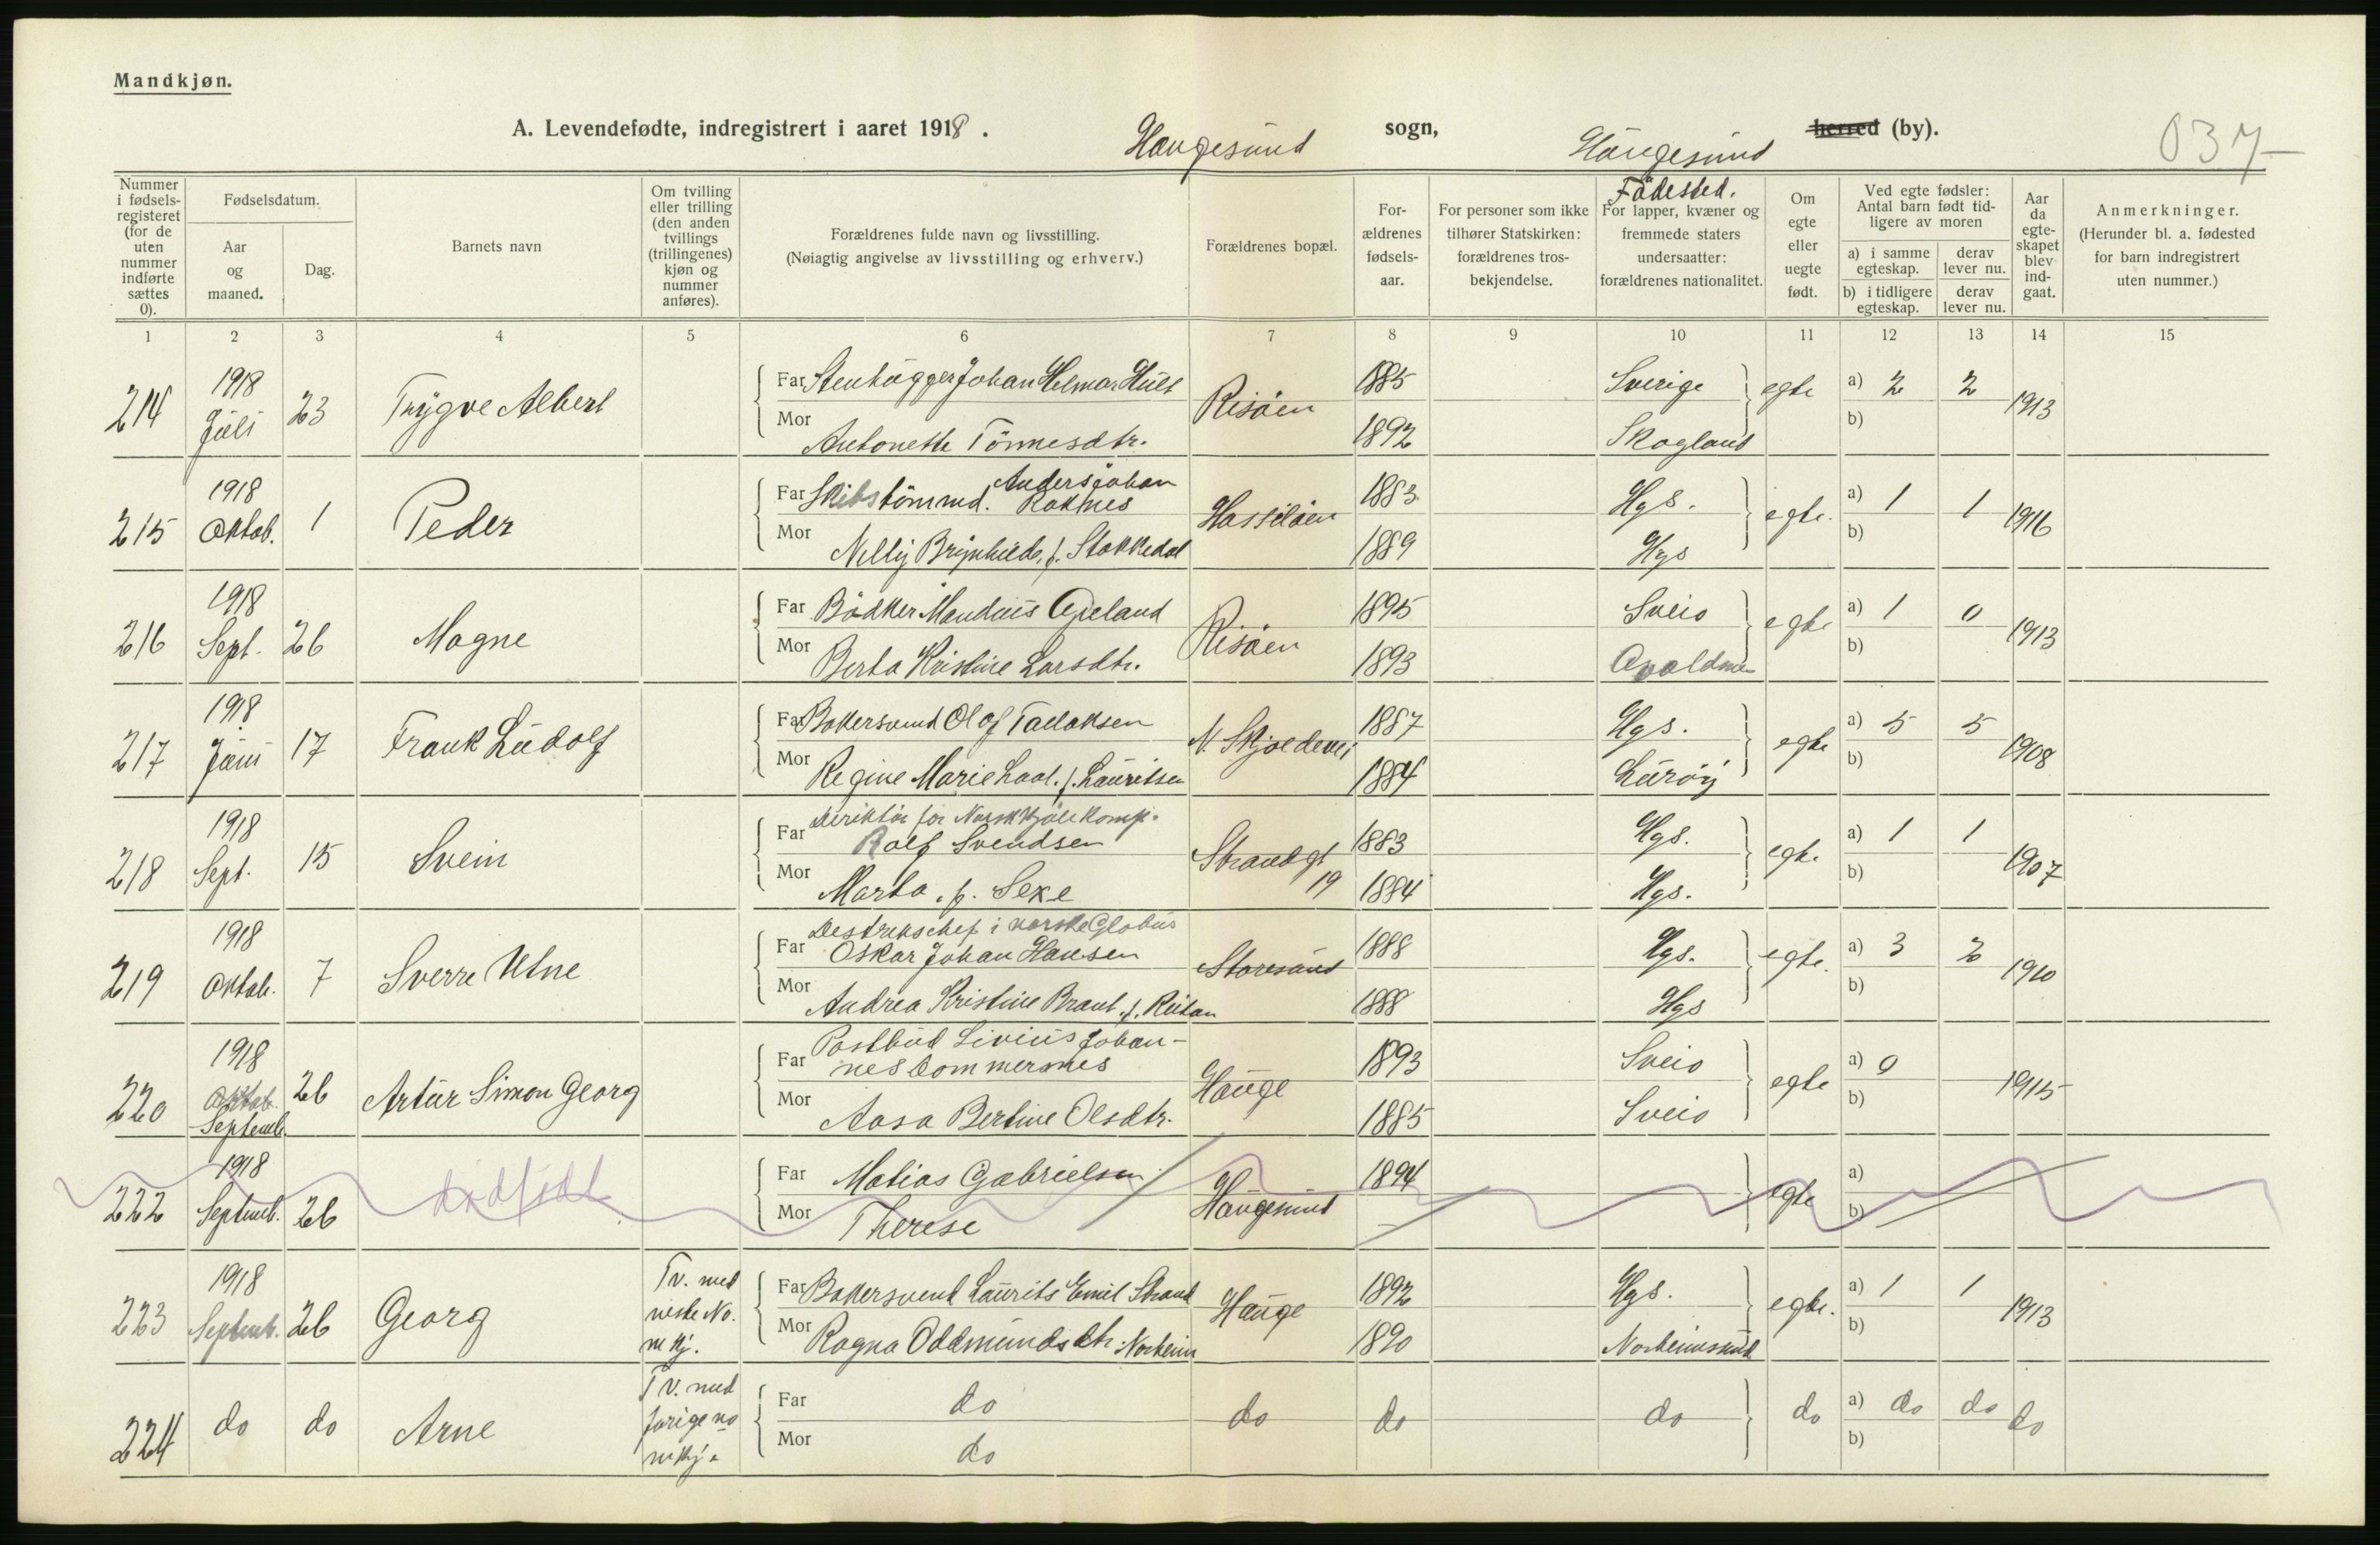 Mandkjøn.
A. Levendefødte, indregistrert i aaret 1918. Haugesund sogn, Haugesund herred (by). 037
Nummer i fødsels-registeret (for de uten nummer indførte sættes 0).
Fødselsdatum.
Aar og maaned.
Dag.
Barnets navn
Om tvilling eller trilling (den anden tvillings (trillingenes) kjøn og nummer anføres).
Forældrenes fulde navn og livsstilling.
(Nøiagtig angivelse av livsstilling og erhverv.)
Forældrenes bopæl.
For-ældrenes fødsels-aar.
For personer som ikke tilhører Statskirken: forældrenes tros-bekjendelse.
Födested.
For lapper, kvæner og fremmede staters undersaatter: forældrenes nationalitet.
Om egte eller uegte født.
Ved egte fødsler: Antal barn født tid-ligere av moren
a) i samme egteskap.
derav lever nu.
b) i tidligere egteskap.
derav lever nu.
Aar da egte-skapet blev ind-gaat.
Anmerkninger.
(Herunder bl. a. fødested for barn indregistrert uten nummer.)
1 2 3 4 5 6 7 8 9 10 11 12 13 14 15
214 1918 Juli 23 Trygve Albert
Far Stenhugger Johan Helmar Hult Risöen 1885 Sverige egte a) 2 2 1913
Mor Antonette Tönnesdtr. 1892 Skogland b)
215 1918 Oktob. 1 Peder
Far Skibstömmd. Anders Johan Roknes Hasselöen 1883 Hgs. egte. a) 1 1 1916
Mor Nelly Brynhild, f. Stokkedal 1889 Hgs b)
216 1918 Sept. 26 Magne
Far Bödker Mandius Apeland Risöen 1895 Sveio egte a) 1 0 1913
Mor Berta Kristine Larsdtr. 1893 Avaldsnes b)
217 1918 Juni 17 Frank Ludolf
Far Bakersvend Olaf Tallaksen N. Skjoldevei 1887 Hgs. egte a) 5 5 1908
Mor Regine Marie f. Lauritsen 1884 Luröy b)
218 1918 Sept. 15 Svein
Far Direktör for Norsk Kjölekomp. Rolf Svendsen Strandgt 19 1883 Hgs. egte a) 1 1 1907
Mor Marta, f. Sexe 1884 Hgs. b)
219 1918 Oktob. 7 Sverre Utne
Far i norske Globus Oskar Johan Hansen Storesund 1888 Hgs. egte. a) 3 2 1910
Mor Andrea Kristine f. 1888 Hgs b)
220 1918 Oktob. Septemb. 26 Artur Simon Georg
Far Postbud Livius Johan-nes Bommersnes Hauge 1893 Sveio egte a) 0 1915
Mor Aasa Bertine Olsdtr. 1885 Sveio b)
222 1918 Septemb. 26 dödfödt
Far Matias Gabrielsen Haugesund 1894 egte a)
Mor Therese b)
223 1918 Septemb. 26 Georg Tv. med neste No. m kj.
Far Bakersvend Laurits Emil Strand Hauge 1892 Hgs. egte. a) 1 1 1913
Mor Ragna Oddmundsdtr. Norheim 1890 Norheimsund b)
224 do do Arne Tv. med forige no m kj.
Far do do do do do a) do do do
Mor do b)